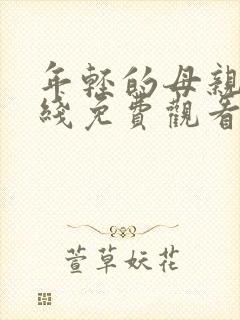 年轻的母親
綫免費觀看
萱草妖花